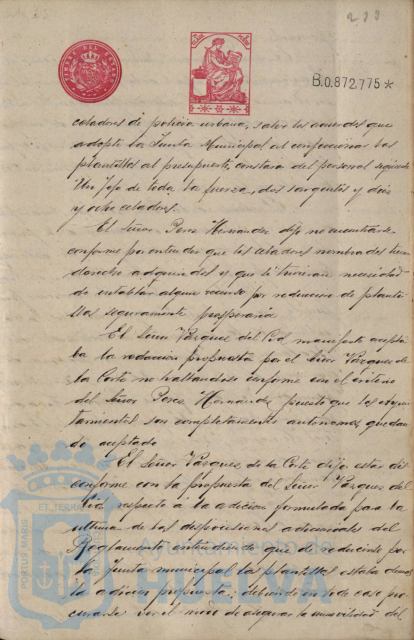 293
B.0.872.775*
celadores de policia urbana, salvo los acuerdos que
adopte la Junta Municipal al confeccionar las
plantillas al presupuesto, constara del personal siguiente
Un Jefe de toda la fuerza, dos sargentos y diez
y ocho celadores.
El Señor Perez Hernandez dijo no encontrarse
conforme por entender que los celadores nombrados tienen
derecho adquirido y que si tuvieran necesidad
de entablar algun recurso por reduccion de planti-
llas seguramente prosperaria
El Señor Vazquez del Cid manifesto acepta
ba la redaccion propuesta por el Señor Vazquez de
la Corte no hallandose conforme con el criterio
del Señor Perez Hernandez puesto que los Ayun
tamientos son completamente autonomos quedan
do aceptado
El Señor Vazquez de la Corte dijo estar
conforme con la propuesta del Señor Vazquez del
Cid respecto á la adicion formulada para la
ultima de las disposiciones adicionales del
Reglamento entendiendo que de reducirse por
la Junta municipal las plantillas estaba demas
la adicion propuesta; debiendo en todo caso pro
curarse ver el modo de asegurar la inamovilidad del
Ayuntamiento de
HUELVA
PORTUS MARIS
ET TERRAE